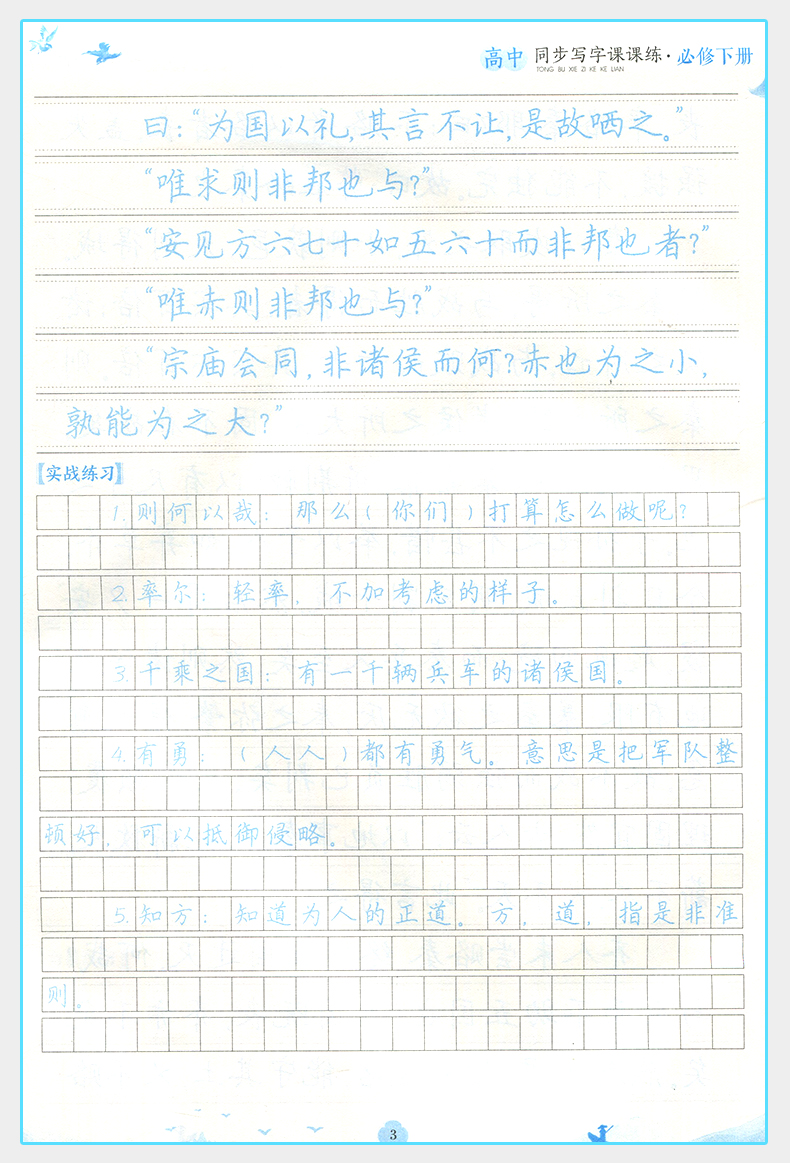 高中 同步写字课课练·必修下册
TONG BU XIE ZI KE KE LIAN
曰：“为国以礼，其言不让，是故哂之。”
“唯求则非邦也与？”
“安见方六七十如五六十而非邦也者？”
“唯赤则非邦也与？”
“宗庙会同，非诸侯而何？赤也为之小，
孰能为之大？”
【实战练习】
1.则何以哉：那么（你们）打算怎么做呢？
2.率尔：轻率，不加考虑的样子。
3.千乘之国：有一千辆兵车的诸侯国。
4.有勇：（人人）都有勇气。意思是把军队整
顿好，可以抵御侵略。
5.知方：知道为人的正道。方，道，指是非准
则。
3